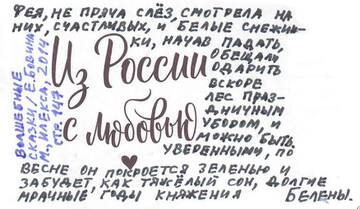 ФЕЯ, НЕ ПРЯЧА СЛЁЗ, СМОТРЕЛА НА
НИХ, СЧАСТЛИВЫХ, И БЕЛЫЕ СНЕЖИН-
КИ, НАЧАВ ПАДАТЬ,
ОБЕЩАЛИ
ОДАРИТЬ
ВСКОРЕ
ЛЕС ПРАЗ-
ДНИЧНЫМ
УБОРОМ, И
МОЖНО БЫТЬ
УВЕРЕННЫМИ, ПО
ВЕСНЕ ОН ПОКРОЕТСЯ ЗЕЛЕНЬЮ И
ЗАБУДЕТ, КАК ТЯЖЁЛЫЙ СОН, ДОЛГИЕ
МРАЧНЫЕ ГОДЫ КНЯЖЕНИЯ БЕЛЕНЫ.
Из России
с любовью
ВОЛШЕБНЫЕ
СКАЗКИ / Е. БОВИНА
М., АЛЕКСА, 2014
СТР 147